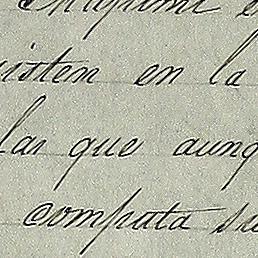 isten en la
las que aunq
compata su